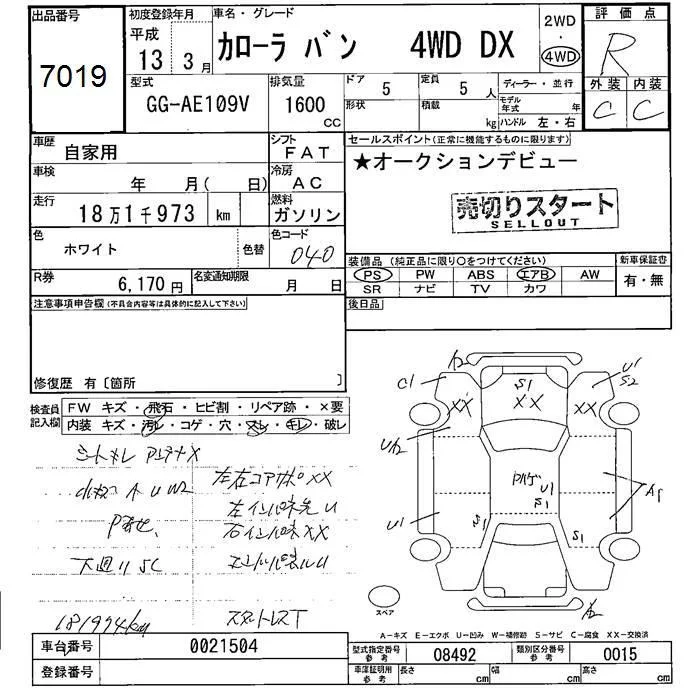 出品番号
7019
初度登録年月
平成
13年 3月
車名・グレード
カローラ バン 4WD DX
2WD
・
4WD
評価点
R
外装 内装
C C
型式
GG-AE109V
排気量
1600
CC
ドア
5
定員
5人
形状
積載
kg
ディーラー・並行
モデル年式 年
ハンドル 左・右
車歴
自家用
シフト
FAT
車検
年 月( 日)
冷房
AC
走行
18万1千973 km
燃料
ガソリン
色
ホワイト
色替
色コード
040
R券
6,170円
名変通知期限
月 日
セールスポイント(正常に機能するものに限ります)
★オークションデビュー
売切りスタート
SELLOUT
装備品 (純正品に限り○をつけてください)
新車保証書
PS PW ABS エアB AW
SR ナビ TV カワ
有・無
後日品
注意事項申告欄(不具合内容等は具体的に記入して下さい)
修復歴 有〔箇所 〕
検査員
記入欄
FW キズ・飛石・ヒビ割・リペア跡・×要
内装 キズ・汚レ・コゲ・穴・スレ・キレ・破レ
左右コアサポXX
下廻りSC
181994km
A2
C1
S1
U1
S2
XX
XX
XX
U1
S1
U1
S1
S1
スペア
A-キズ E-エクボ U-凹み W-補修跡 S-サビ C-腐食 XX-交換済
車台番号
0021504
登録番号
型式指定番号
参考
08492
類別区分番号
参考
0015
車庫証明用
参考
長さ cm
幅 cm
高さ cm